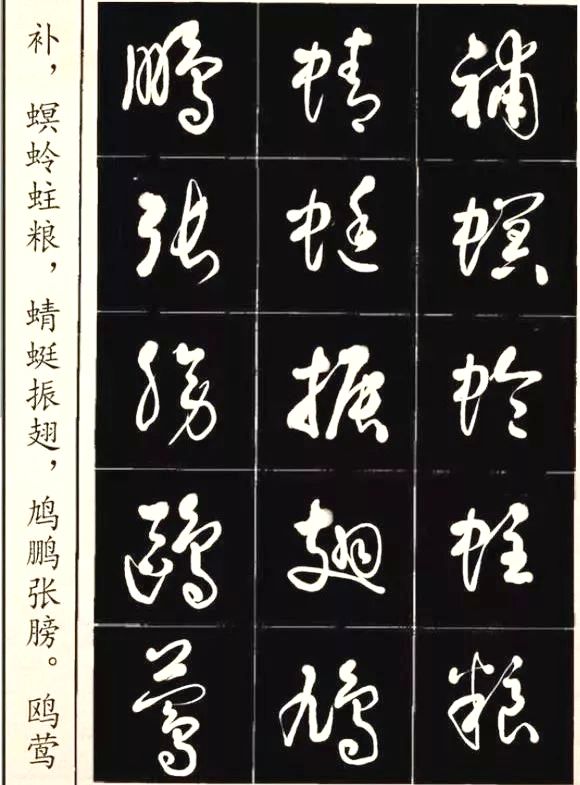 補螟蛉蛀粮
蜻蜓振翅鳩
鵬張膀鷗鶯
补，螟蛉蛀粮，蜻蜓振翅，鸠鹏张膀。鸥莺